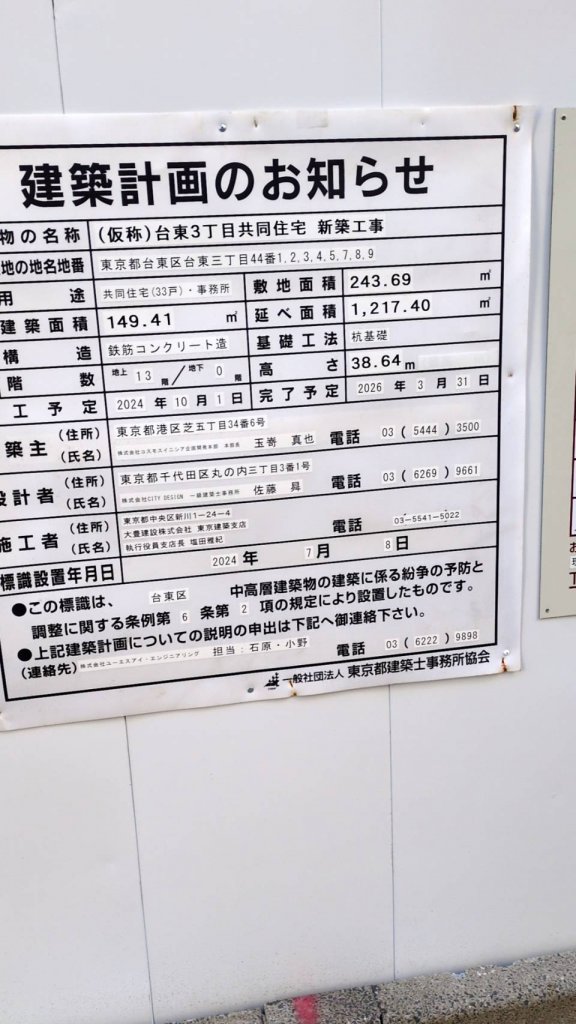 建築計画のお知らせ
物の名称 (仮称)台東3丁目共同住宅 新築工事
地の地名地番 東京都台東区台東三丁目44番1,2,3,4,5,7,8,9
用途 共同住宅(33戸)・事務所 敷地面積 243.69 ㎡
建築面積 149.41 ㎡ 延べ面積 1,217.40 ㎡
構造 鉄筋コンクリート造 基礎工法 杭基礎
階数 地上 13 階/地下 0 階 高さ 38.64 m
工予定 2024 年 10 月 1 日 完了予定 2026 年 3 月 31 日
築主 (住所) 東京都港区芝五丁目34番6号
(氏名) 株式会社コスモスイニシア企画開発本部 本部長 玉嵜 真也 電話 03 ( 5444 ) 3500
設計者 (住所) 東京都千代田区丸の内三丁目3番1号
(氏名) 株式会社CITY DESIGN 一級建築士事務所 佐藤 曻 電話 03 ( 6269 ) 9661
施工者 (住所) 東京都中央区新川1-24-4
(氏名) 大豊建設株式会社 東京建築支店
執行役員支店長 塩田雅紀 電話 03-5541-5022
標識設置年月日 2024 年 7 月 8 日
●この標識は、 台東区 中高層建築物の建築に係る紛争の予防と
調整に関する条例第 6 条第 2 項の規定により設置したものです。
●上記建築計画についての説明の申出は下記へ御連絡下さい。
(連絡先) 株式会社ユーエスアイ・エンジニアリング 担当:石原・小野 電話 03 ( 6222 ) 9898
一般社団法人 東京都建築士事務所協会